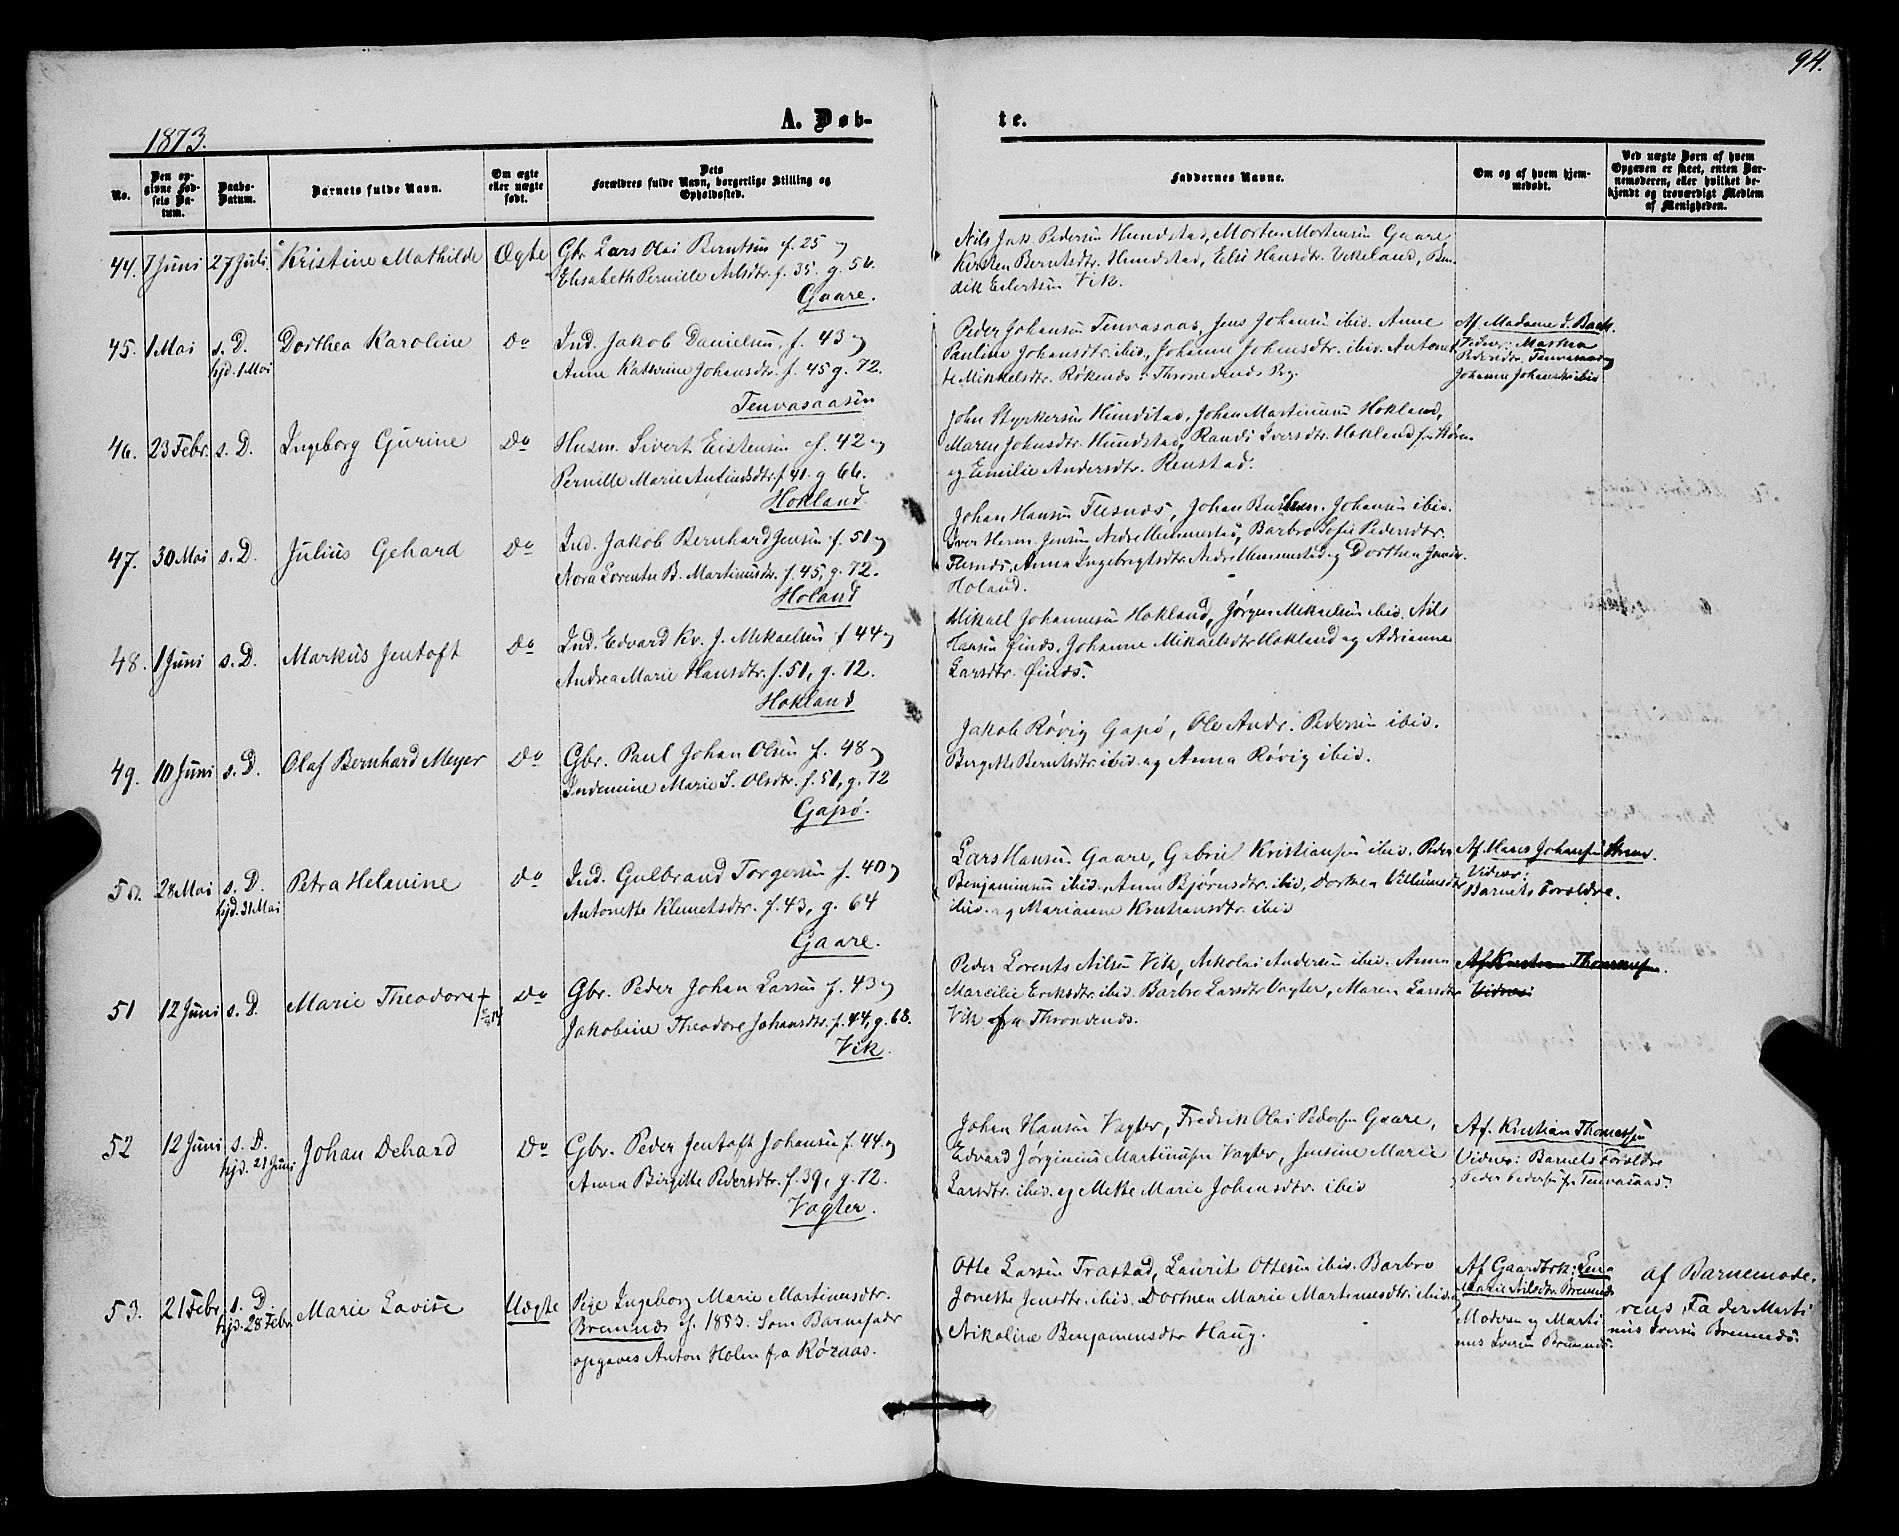 94.
1873.
A. Døb-
te.
No.
Den op-
givne Fød-
sels Da-
tum.
Daabs-
Datum.
Barnets fulde Navn.
Om ægte
eller uægte
født.
Dets
Forældres fulde Navn, borgerlige Stilling og
Opholdssted.
Faddernes Navne.
Om og af hvem hjem-
medøbt.
Ved uægte Børn af hvem
Opgaven er skeet, enten Bar-
nemoderen, eller hvilket be-
kjendt og troværdigt Medlem
af Menigheden.
44. 7 Juni 27 Juli Kristine Mathilde Ægte
Gbr. Lars Olai Berntsen f. 25 og
Elisabeth Pernille Nilsdtr. f. 35. g. 56.
Gaare.
Nils Jak. Pedersen Hundstad, Morten Mortensen Gaare,
Kirsten Berntsdtr. Hundstad, Else Hansdtr. Vikeland, Ben-
dik Eilertsen Vik.
45. 1 Mai s. D. Dorthea Karoline Do
hjd. 1 Mai
Ind. Jakob Danielsen f. 43 og
Anne Kathrine Johansdtr. f. 45 g. 72.
Tenvasaasen
Peder Johansen Tenvasaas, Jens Johansen ibid. Anne
Pauline Johansdtr. ibid, Johanne Johansdtr. ibid. Antonet-
te Mikkelsdtr. Røkenæs i Throndenæs Prg.
Af Madame J. Baak.
Vidner: Marthea
Pedersdtr. Tenvasaas og
Johanne Johansdtr ibid
46. 23 Febr. s. D. Ingeborg Gurine Do
Husm. Sivert Eistensen f. 42 og
Pernille Marie Antinsdtr. f. 41. g 66.
Hokland.
John Styrkersen Hundstad, Johan Martinusen Hokland,
Maren Johnsdtr. Hundstad, Randi Iversdtr. Hokland
og Emilie Andersdtr. Renstad.
47. 30 Mai s. D. Julius Gehard Do
Ind. Jakob Bernhard Jensen f. 51 og
Nora Lorentse B. Martinusdtr. f. 45, g. 72.
Holand
Johan Hansen Fusnæs, Johan Johansen ibid.
Iver Herm. Jensen Nedre Hemmestad, Barbro Sofie Pedersdtr.
Fusnæs, Anna Ingebrigtsdtr. Nedre Hemmestad og Dorthea Jensdtr.
Holand.
48. 1 Juni s. D. Markus Jentoft Do
Ind. Edvard Kv. J. Mekaelsen f 44 og
Andrea Marie Hansdtr. f. 51, g. 72.
Hokland
Mikael Johannesen Hokland, Jørgen Mikaelsen ibid. Nils
Hansen Øinæs, Johanne Mikaelsdtr Hokland og Adrianna
Larsdtr. Øinæs.
49. 10 Juni s. D. Olaf Bernhard Meyer Do
Gbr. Paul Johan Olsen f. 48 og
Indemine Marie S. Olsdtr. f. 51, g. 72
Gapø.
Jakob Røvig Gapø, Ole Andr. Pedersen ibid.
Bergette Berntsdtr. ibid. og Anna Røvig ibid.
50. 28 Mai s. D. Petra Helmine Do
hjd. 31 Mai
Ind. Gulbrand Torgersen f. 40 og
Antonette Klemetsdtr. f. 43, g. 64
Gaare.
Lars Hansen Gaare, Gabriel Kristiansen ibid. Peder
Benjaminsen ibid. Anne Bjørnsdtr. ibid, Dorthea Villumsdtr
ibid. og Marianne Kristiansdtr. ibid
Af Hans Johansen
Vidner:
Barnets Forældre.
51 12 Juni s. D. Marie Theodore + Do
Gbr. Peder Johan Larsen f. 43 og
Jakobine Theodore Johansdtr. f. 44, g. 68.
Vik.
Peder Lorents Nilsen Vik, Nikolai Andersen ibid. Anna
Marcilie Eriksdtr. ibid. Barbro Larsdtr Vagter, Maren Larsdtr
Vik fra Throndenæs.
Af Kristian Thomesen.
Vidner:
52 12 Juni s. D. Johan Dehard Do
hjd. 21 Juni
Gbr. Peder Jentoft Johansen f. 44 og
Anna Birgitte Pedersdtr. f. 39, g. 72.
Vagter.
Johan Hansen Vagter, Fredrik Olai Pedersen Gaare,
Edvard Jørginius Martinussen Vagter, Jensine Marie
Larsdtr. ibid. og Mette Marie Johansdtr. ibid
Af Kristian Thomesen
Vidner: Barnets Forældre
og Peder Pedersen fra Tenvasaas.
53. 21 Febr. s. D. Marie Lovise Uægte
hjd. 28 Febr
Pige Ingeborg Marie Martinusdtr.
Bremnæs f. 1853. Som Barnefader
opgaves Anton Holm fra Røraas.
Otte Larsen Trastad, Laurit Ottesen ibid. Barbro
Jonette Jensdtr. ibid. Dorthea Marie Martinusdtr. ibid. og
Nikoline Benjaminsdtr Haug.
Af Gaardbrk: Lena
Marie Nilsdtr. Bremnæs
Moderen og Marti-
nus Iversen Bremnæs.
af Barnemode-
rens Fader Marti-
nus Iversen Bremnæs.